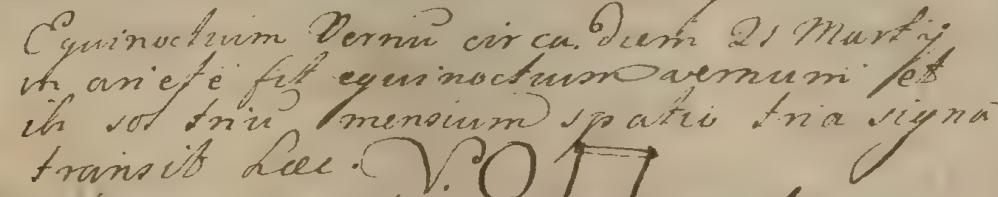 Equinoctium Vernū circa. diem 21 Martij
in ariete fit equinoctium vernum et
ibi sol triū mensium spatio tria signa
transit hæc. ♈. ♉ ♊